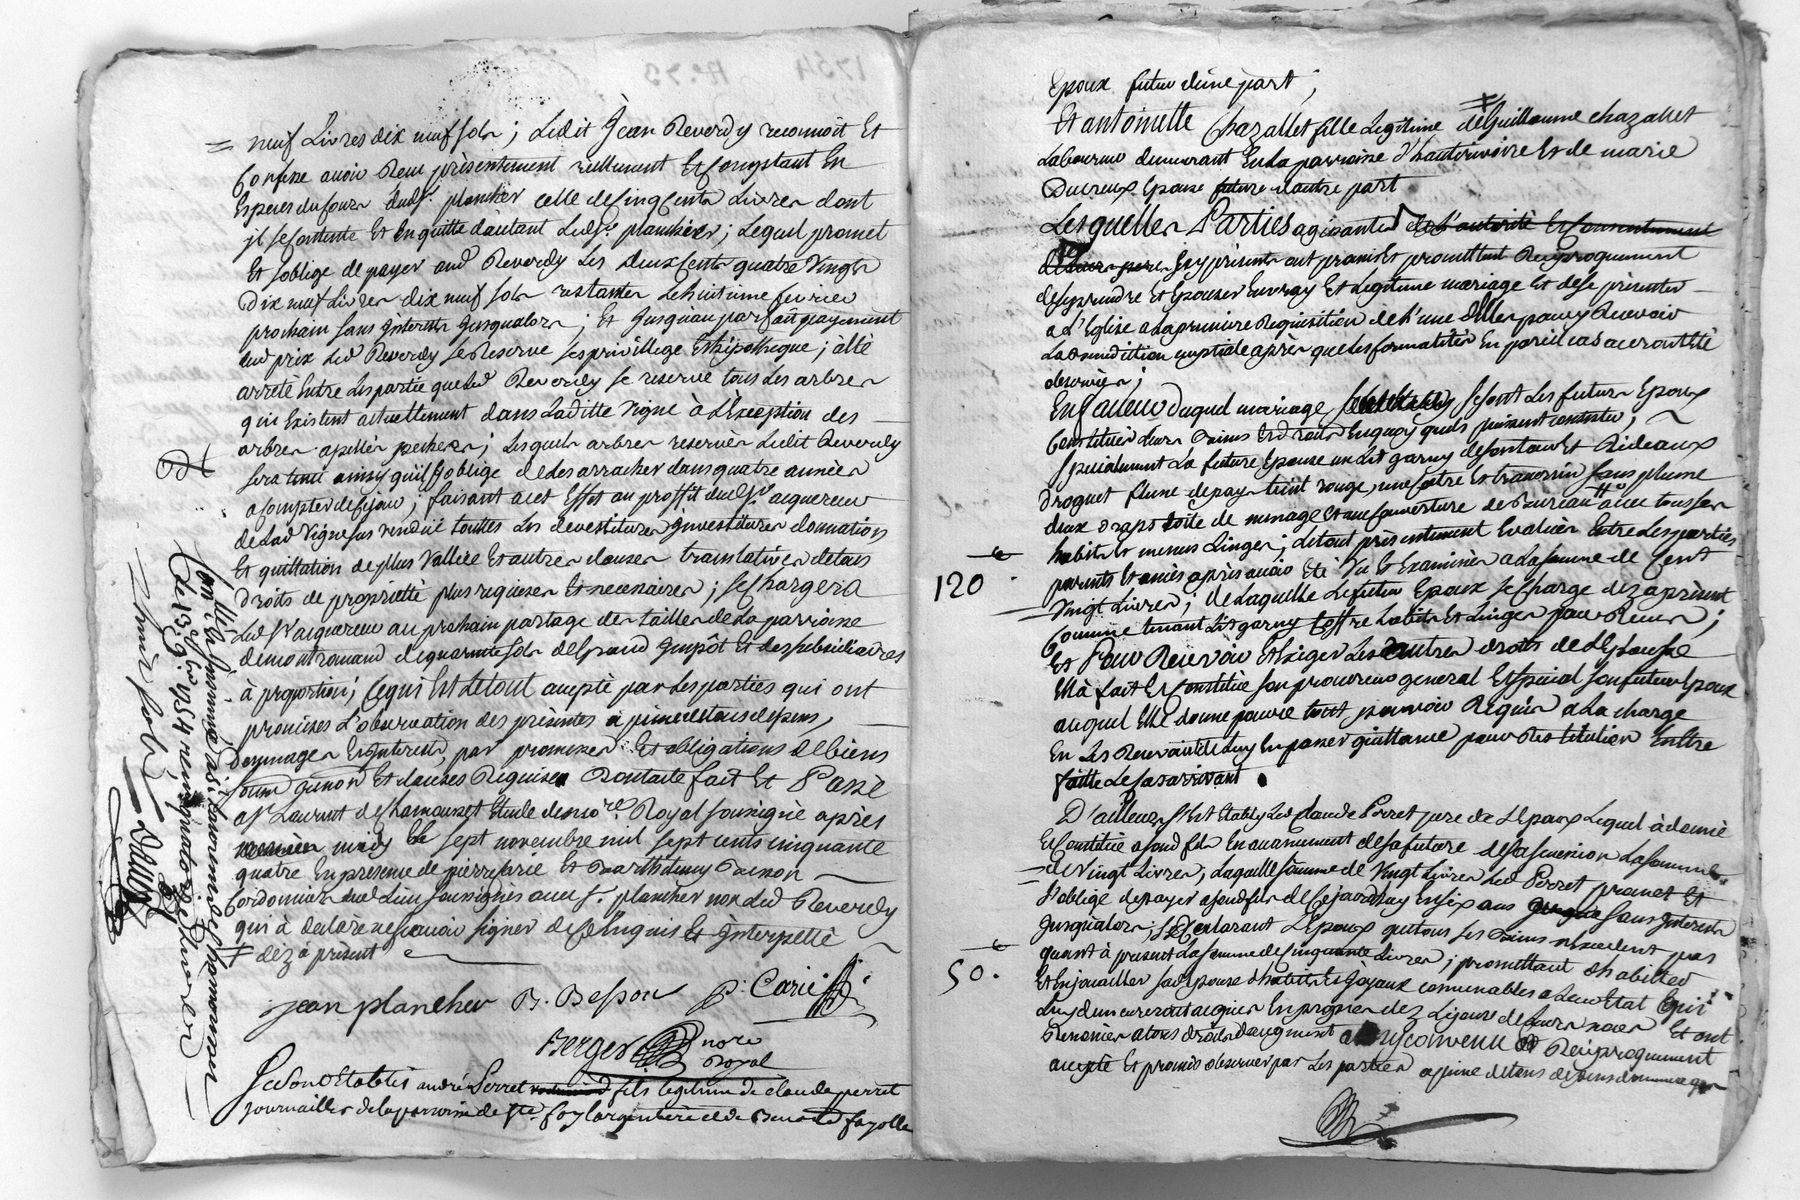 neuf Livres dix neuf sols ; Ledit Jean Reverdy reconnoit Et
Confesse avoir Reçu présentement réellement Et Comptant En
Especes du Cours dud. Sr. plancher celle de Cinq Cents Livres dont
jl se Contente Et En quitte d'autant Led. Sr. plancher ; Lequel promet
Et s'oblige de payer aud Reverdy Les deux Cents quatre Vingts
Dix neuf Livres dix neuf sols restantes Le huitieme fevrier
prochain sans jnterets jusqualors ; Et jusquau parfait payement
dud prix Led Reverdy se Reserve ses privillege Et hipotheque ; a été
arreté Entre Les partie que Led Reverdy se reserve tous Les arbres
qui Existent actuellement dans Laditte Vigne à L'Exception des
arbres apellés pechers ; Lesquels arbres reservés Ledit Reverdy
sera tenu ainsy quil s'oblige de Les arracher dans quatre années
a Compter de Ce jour ; faisant a cet Effet au proffit dud. Sr. acquereur
de Lad Vigne sus vendue toutes Les devestitures jnvestitures donnation
Et quittation de plus Vallüe Et autres clauses translatives de tous
Droits de propriété plus requises Et necessaires ; se Chargera
Led Sr acquereur au prochain partage des tailles de La parroisse
de montromand de quarante sols de Grand jmpôt Et des subsidiaires
à proportion ; Ce qui Est Le tout accepté par Les parties qui ont
promises L'observation des présentes à peine de tous depens,
dommages Et jnterets, par promesses Et obligations de biens
soum Et clauses Requises Dont acte fait Et Passé
a St Laurent de Chamousset Etude du no.re Royal soussigné après
midy Le sept novembre mil sept cents cinquante
quatre En presence de pierre Carie Et Barthelemy Besson
Cordonnier dud Lieu soussignés avec Sr. plancher non Led Reverdy
qui à declaré ne sçavoir signer de Ce Enquis Et jnterpellé
≠ dèz à présent
jean plancher B. Besson p. Carié
Berger nore
Royal
Se sont Etablis andré Perret fils legitime de claude perret
journaillier de la parroisse de ste foy l'argentiere et de Benoite fayolle
Con.llé a St Laurent de chamousset
Le 13. 9bre 1754 reçu quatre livres
Epoux futur d'une part ;
Et antoinette Chazallet fille Legitime de Guillaume chazallet
Laboureur demeurant En La parroisse d'hauterivoire Et de marie
Ducreux Epouse future d'autre part
Lesquelles Parties agissantes de L'autorité Et Consentement
de Leurs peres jcy présents ont promis Et promettent Reciproquement
de se prendre Et Epouser En vray Et Legitime mariage Et de se présenter
a L'Eglise a La premiere Requisition de L'une d'Elles pour y Recevoir
La Benediction nuptiale après que Les formalités En pareil cas auront Eté
observées ;
En faveur duquel mariage se sont Les futurs Epoux
Constitués Leurs Biens Et droits En quoy quils puissent consister ;
specialement La future Epouse un Lit garny de son tour Et Rideaux
Droguet de pays teint rouge, une Coitre Et traversin sans plume
deux draps toile de menage Et une Couverture de Bureau avec tous ses
habits Et menus Linges ; Le tout présentement Evalüé Entre Les parties
parents Et amies après avoir Eté Vu Et Examinés a La somme de Cent
120
Vingt Livres ; de Laquelle Le futur Epoux se Charge dez a présent
Comme tenant Lit garny Coffre habits Et Linges pour Reçus ;
Et Pour Recevoir Et Exiger Les autres droits de L'Epouse
Ellà fait Et Constitué son procureur general Et special son futur Epoux
auquel Elle donne pouvoir tout pouvoir Requis a La charge
En Les Recevant de Luy En passer quittance pour Restitution En Etre
faitte Le Cas arrivant .
D'ailleurs s'Est Etably Led Claude Perret pere de L'Epoux Lequel à donné
Et Constitué a son d fils En avancement de sa future de sa succession La somme
de Vingt Livres, Laquelle somme de Vingt Livres Led Perret promet Et
s'oblige de payer a son d fils de Ce jourdhuy En six ans sans jnterets
jusqualors ; Declarant L'Epoux que tous ses Biens n'excedent pas
50
quant à présent La somme de Cinquante Livres ; promettant d'habiller
Et Enjoailler sad Epouse d'habits Et joyaux convenables a Leur Etat qui
Luy demeureront acquis En propres dez Le jour de Leurs noces Et ont
Renoncés a tous droits d'augment Reciproquement
accepté Et promis observer par Les parties a peine de tous depens dommages